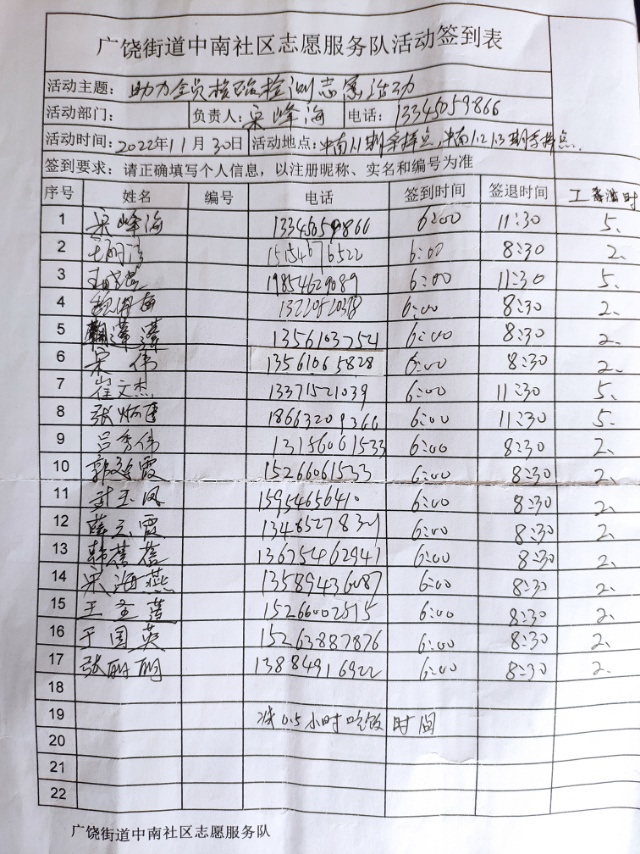 广饶街道中南社区志愿服务队活动签到表
活动主题: 助力全员核酸检测志愿活动
活动部门: 负责人: 宋峰海 电话: 13345059866
活动时间: 2022年11月30日 活动地点: 中南11期采样点 中南12.13期采样点
签到要求: 请正确填写个人信息，以注册昵称、实名和编号为准
序号 姓名 编号 电话 签到时间 签退时间
1 宋峰海 13345059866 6:00 11:30 5.
2 15154676522 6:00 8:30 2.
3 19854629089 6:00 11:30 5.
4 6:00 8:30 2.
5 13561037254 6:00 8:30 2.
6 宋伟 13561065828 6:00 8:30 2.
7 崔文杰 13371521039 6:00 11:30 5.
8 18663209366 6:00 11:30 5.
9 吕秀伟 13156061533 6:00 8:30 2.
10 霞 15266061533 6:00 8:30 2.
11 玉凤 15954656410 6:00 8:30 2.
12 薛云霞 6:00 8:30 2.
13 韩蓓蓓 13675462941 6:00 8:30 2.
14 宋海燕 13589436087 6:00 8:30 2.
15 15266002515 6:00 8:30 2.
16 于国英 15263887876 6:00 8:30 2.
17 张丽丽 13884916922 6:00 8:30 2.
18
19 减0.5小时吃饭时间
20
21
22
广饶街道中南社区志愿服务队